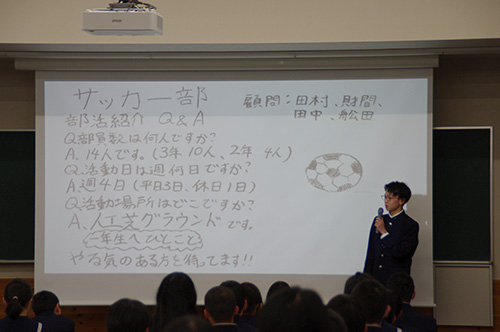 サッカー部
部活紹介 Q&A
顧問：田村、財間、
田中、舩田
Q.部員数は何人ですか?
A.14人です。(3年10人、2年 4人)
Q.活動日は週何日ですか?
A週4日(平日3日、休日1日)
Q.活動場所はどこですか?
A、人工芝グラウンドです。
一年生へひとこと
やる気のある方を待ってます!!